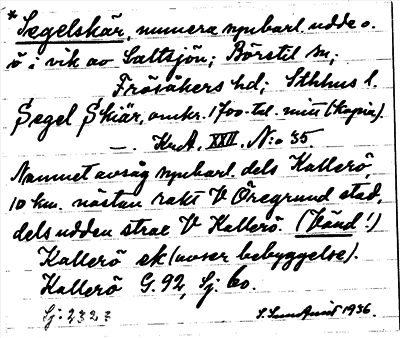 *Segelskär, numera uppbarl. udde o.
ö i vik av Saltsjön; Börstil sn;
Frösåkers hd; Sthlms l.
Segel Skiär, omkr. 1700-tal. mitt (kopia).
—. KrA. XXII. N:o 35.
Namnet avsåg uppbarl. dels Kallerö,
10 km. nästan rakt V Öregrund stad,
dels udden strax V Kallerö. (Vänd!)
Kallerö ek (avser bebyggelse).
Kallerö G. 92, Sj. 60.
Sj: 2323 S. Sundqvist 1936.